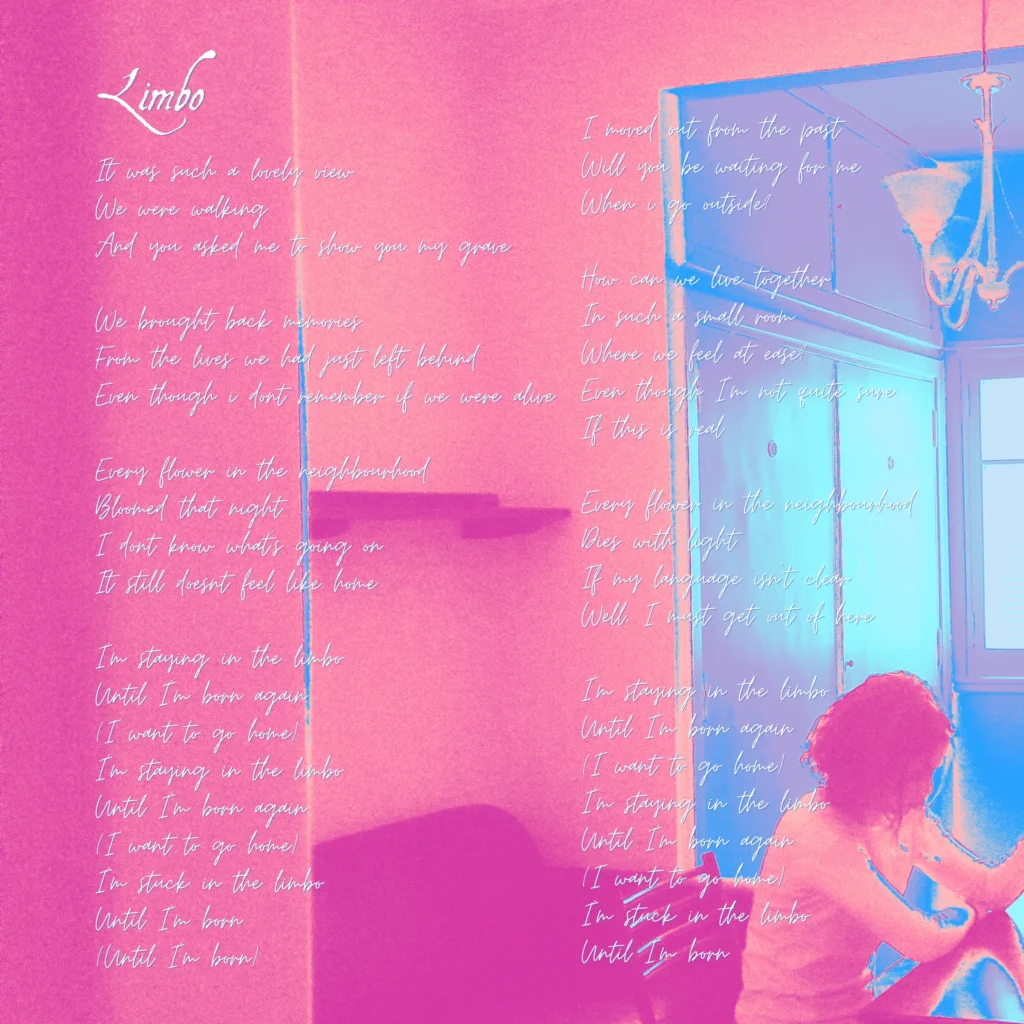 Limbo
It was such a lovely view
We were walking
And you asked me to show you my grave
We brought back memories
From the lives we had just left behind
Even though i dont remember if we were alive
Every flower in the neighbourhood
Bloomed that night
I dont know what's going on
It still doesnt feel like home
I'm staying in the limbo
Until I'm born again
(I want to go home)
I'm staying in the limbo
Until I'm born again
(I want to go home)
I'm stuck in the limbo
Until I'm born
(Until I'm born)
I moved out from the past
Will you be waiting for me
When i go outside?
How can we live together
In such a small room
Where we feel at ease?
Even though I'm not quite sure
If this is real
Every flower in the neighbourhood
Dies with light
If my language isn't clear
Well, I must get out of here
I'm staying in the limbo
Until I'm born again
(I want to go home)
I'm staying in the limbo
Until I'm born again
(I want to go home)
I'm stuck in the limbo
Until I'm born